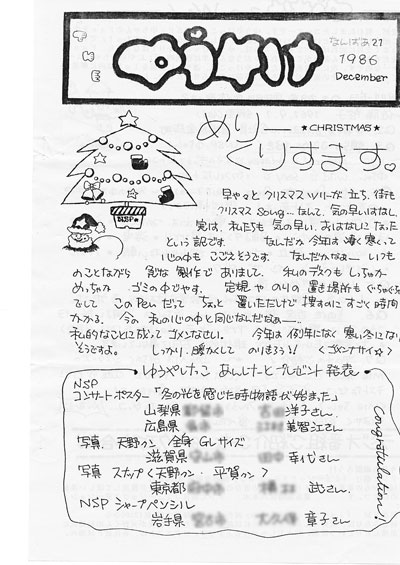 THE ゆうけけ
なんばあ21
1986
December
めりー
★CHRISTMAS★
くりすます。
NSP
早々と クリスマス ツリーが 立ち、街も
クリスマス Song... なんて、気の早いはなし。
実は、私たちも 気の早い、おはなしに なった
という訳です。 なんだか 今年は 凄く寒くて
心の中も こごえそうです。 なんだかなぁー いつも
のことながら 急な 製作で ありまして、 私のデスクも しっちゃか
めっちゃか ゴミの中です。 定規や のりの 置き場所も ぐちゃぐちゃ
でして この Pen だって ちょっと 置いただけで 捜すのに すごく 時間
かかる、 今の 私の心の中と 同じなんだなぁー
私的なことに成って ゴメンなさい。 今年は 例年になく 寒い冬になり
そうですよ。 しっかり、暖かくして のりきろう!! 〈ゴメンナサイ☆〉
ゆうべんたこ あんけーと プレゼント 発表
NSP
コンサートポスター「冬の光を感じた時物語が始まった」
山梨県 洋子さん
広島県 美智江さん
写真 天野クン 全身 GLサイズ
滋賀県 田中 幸代さん
写真 スナップ〈天野クン・平賀クン〉
東京都 武さん
NSP シャープペンシル
岩手県 章子さん
Congratulation!